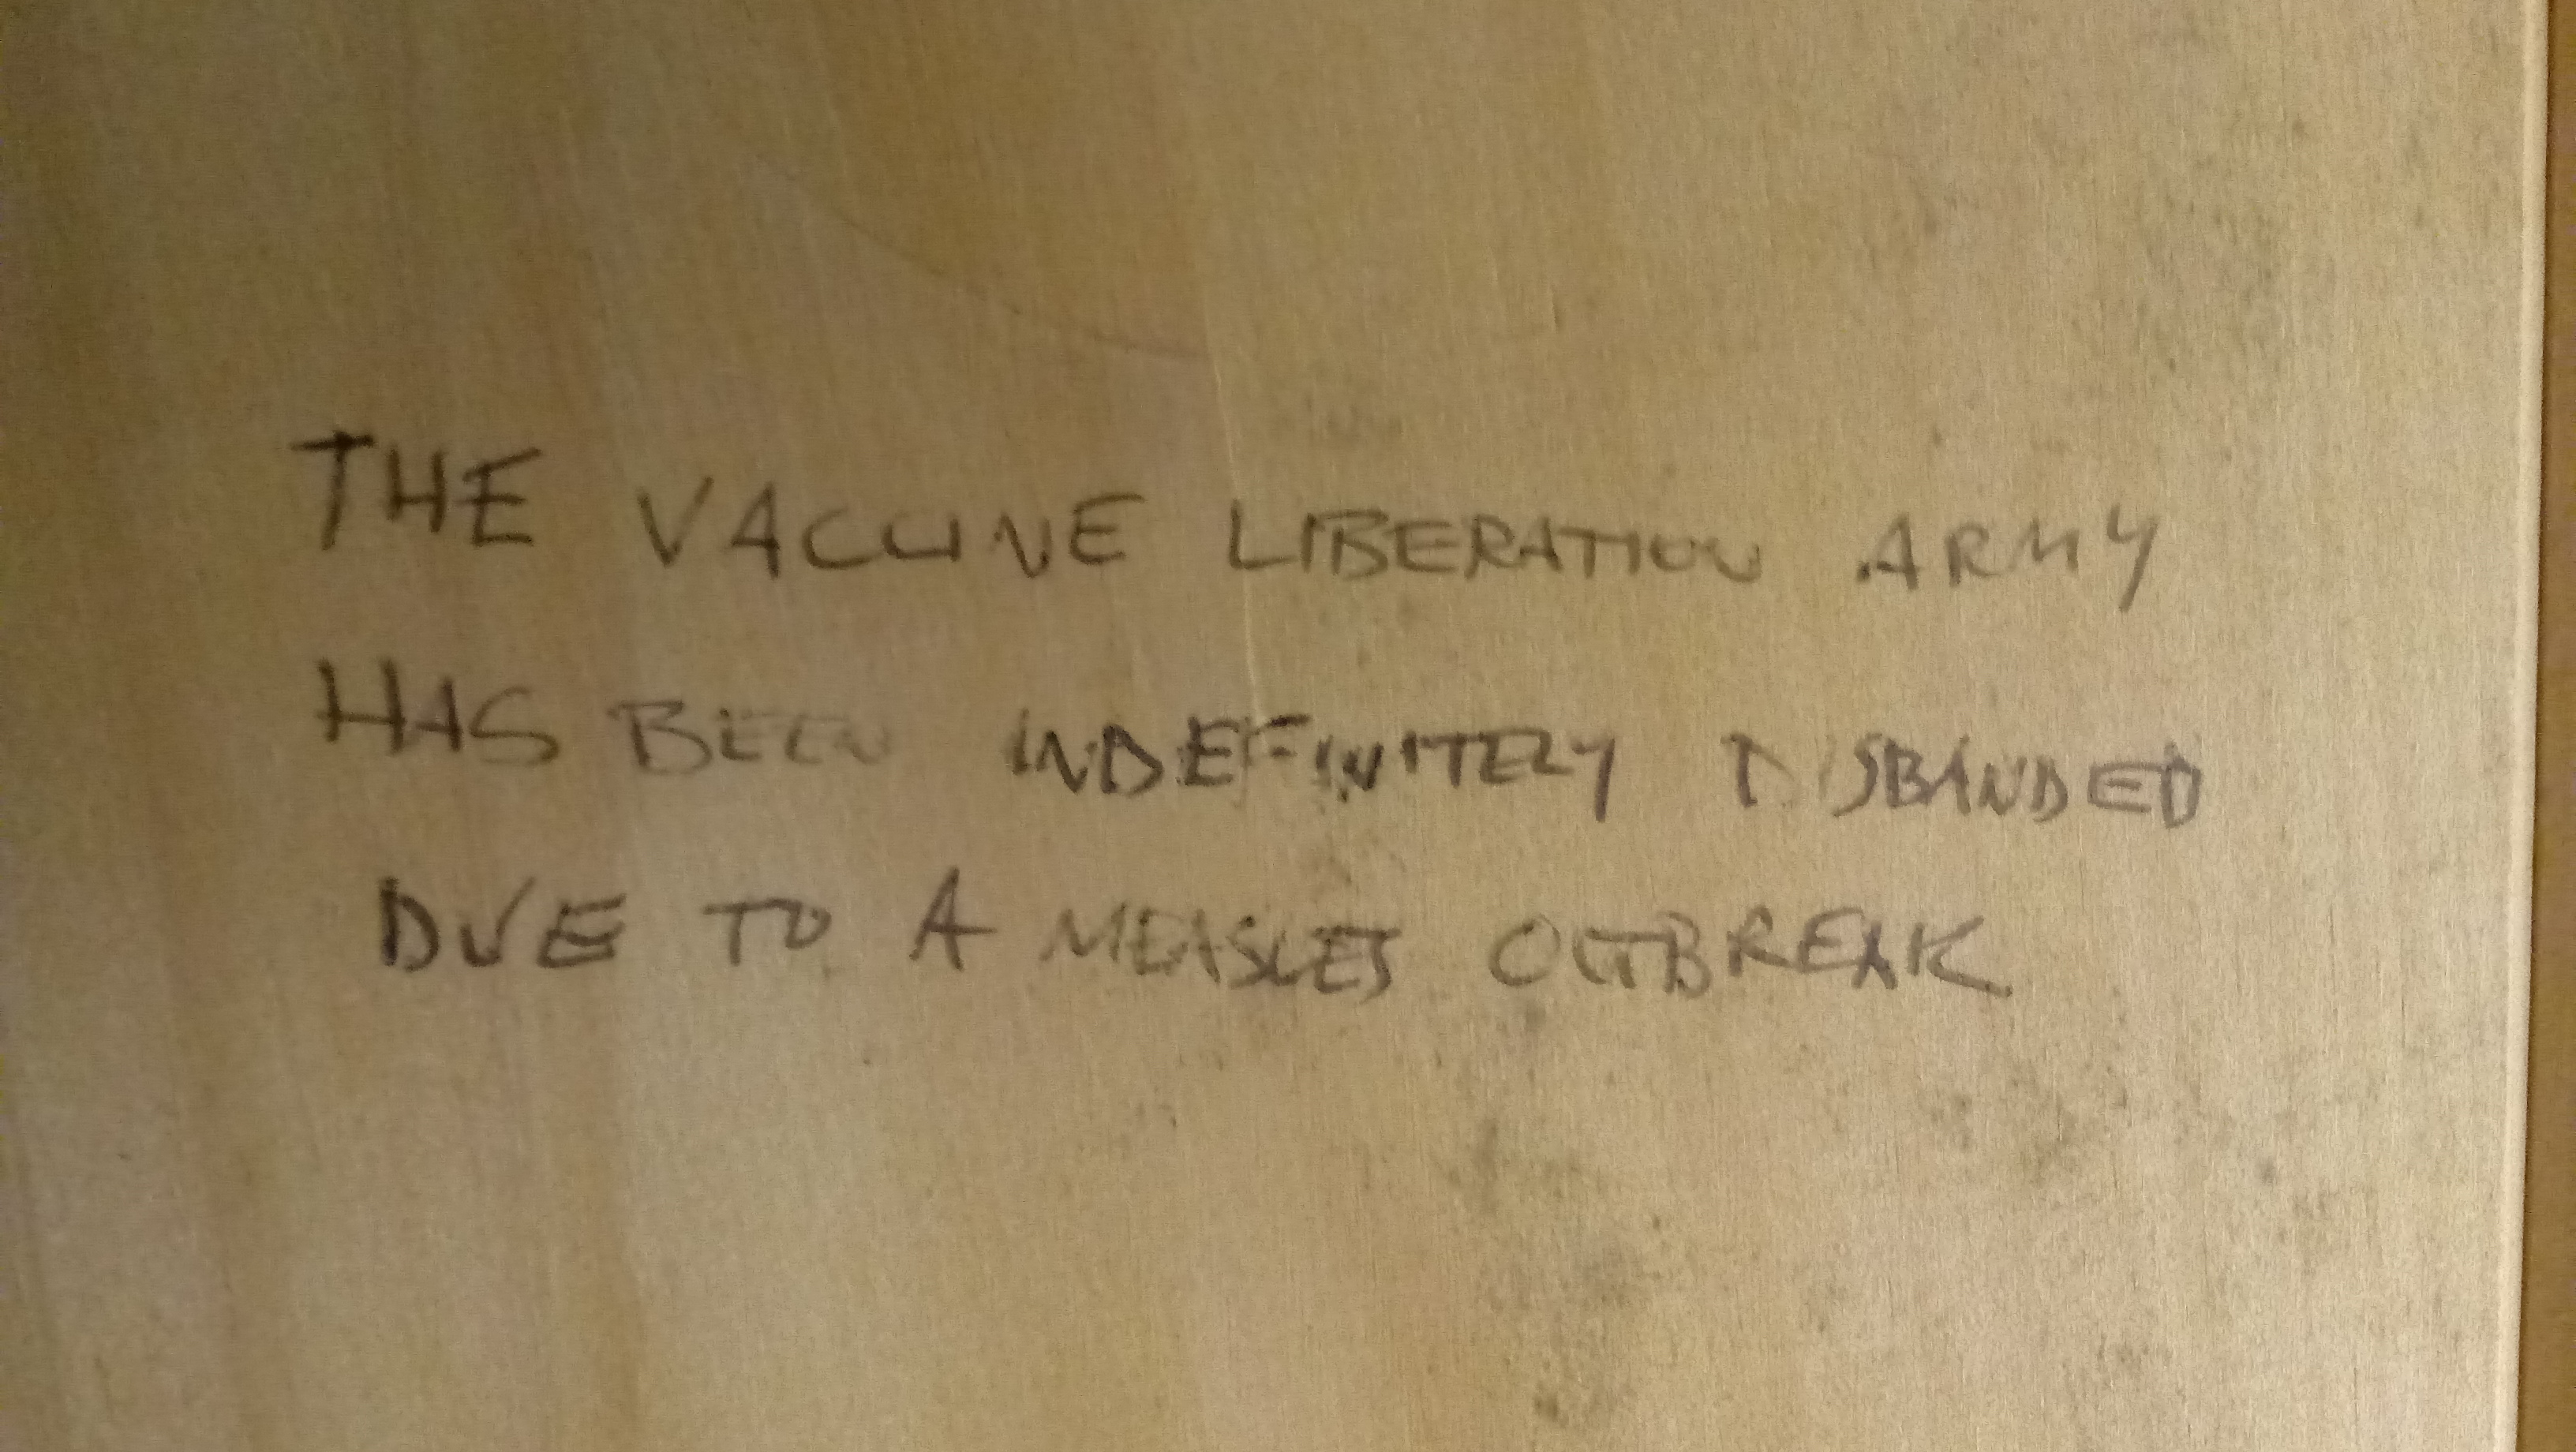 THE VACCINE LIBERATION ARMY
HAS BEEN INDEFINITELY DISBANDED
DUE TO A MEASLES OUTBREAK